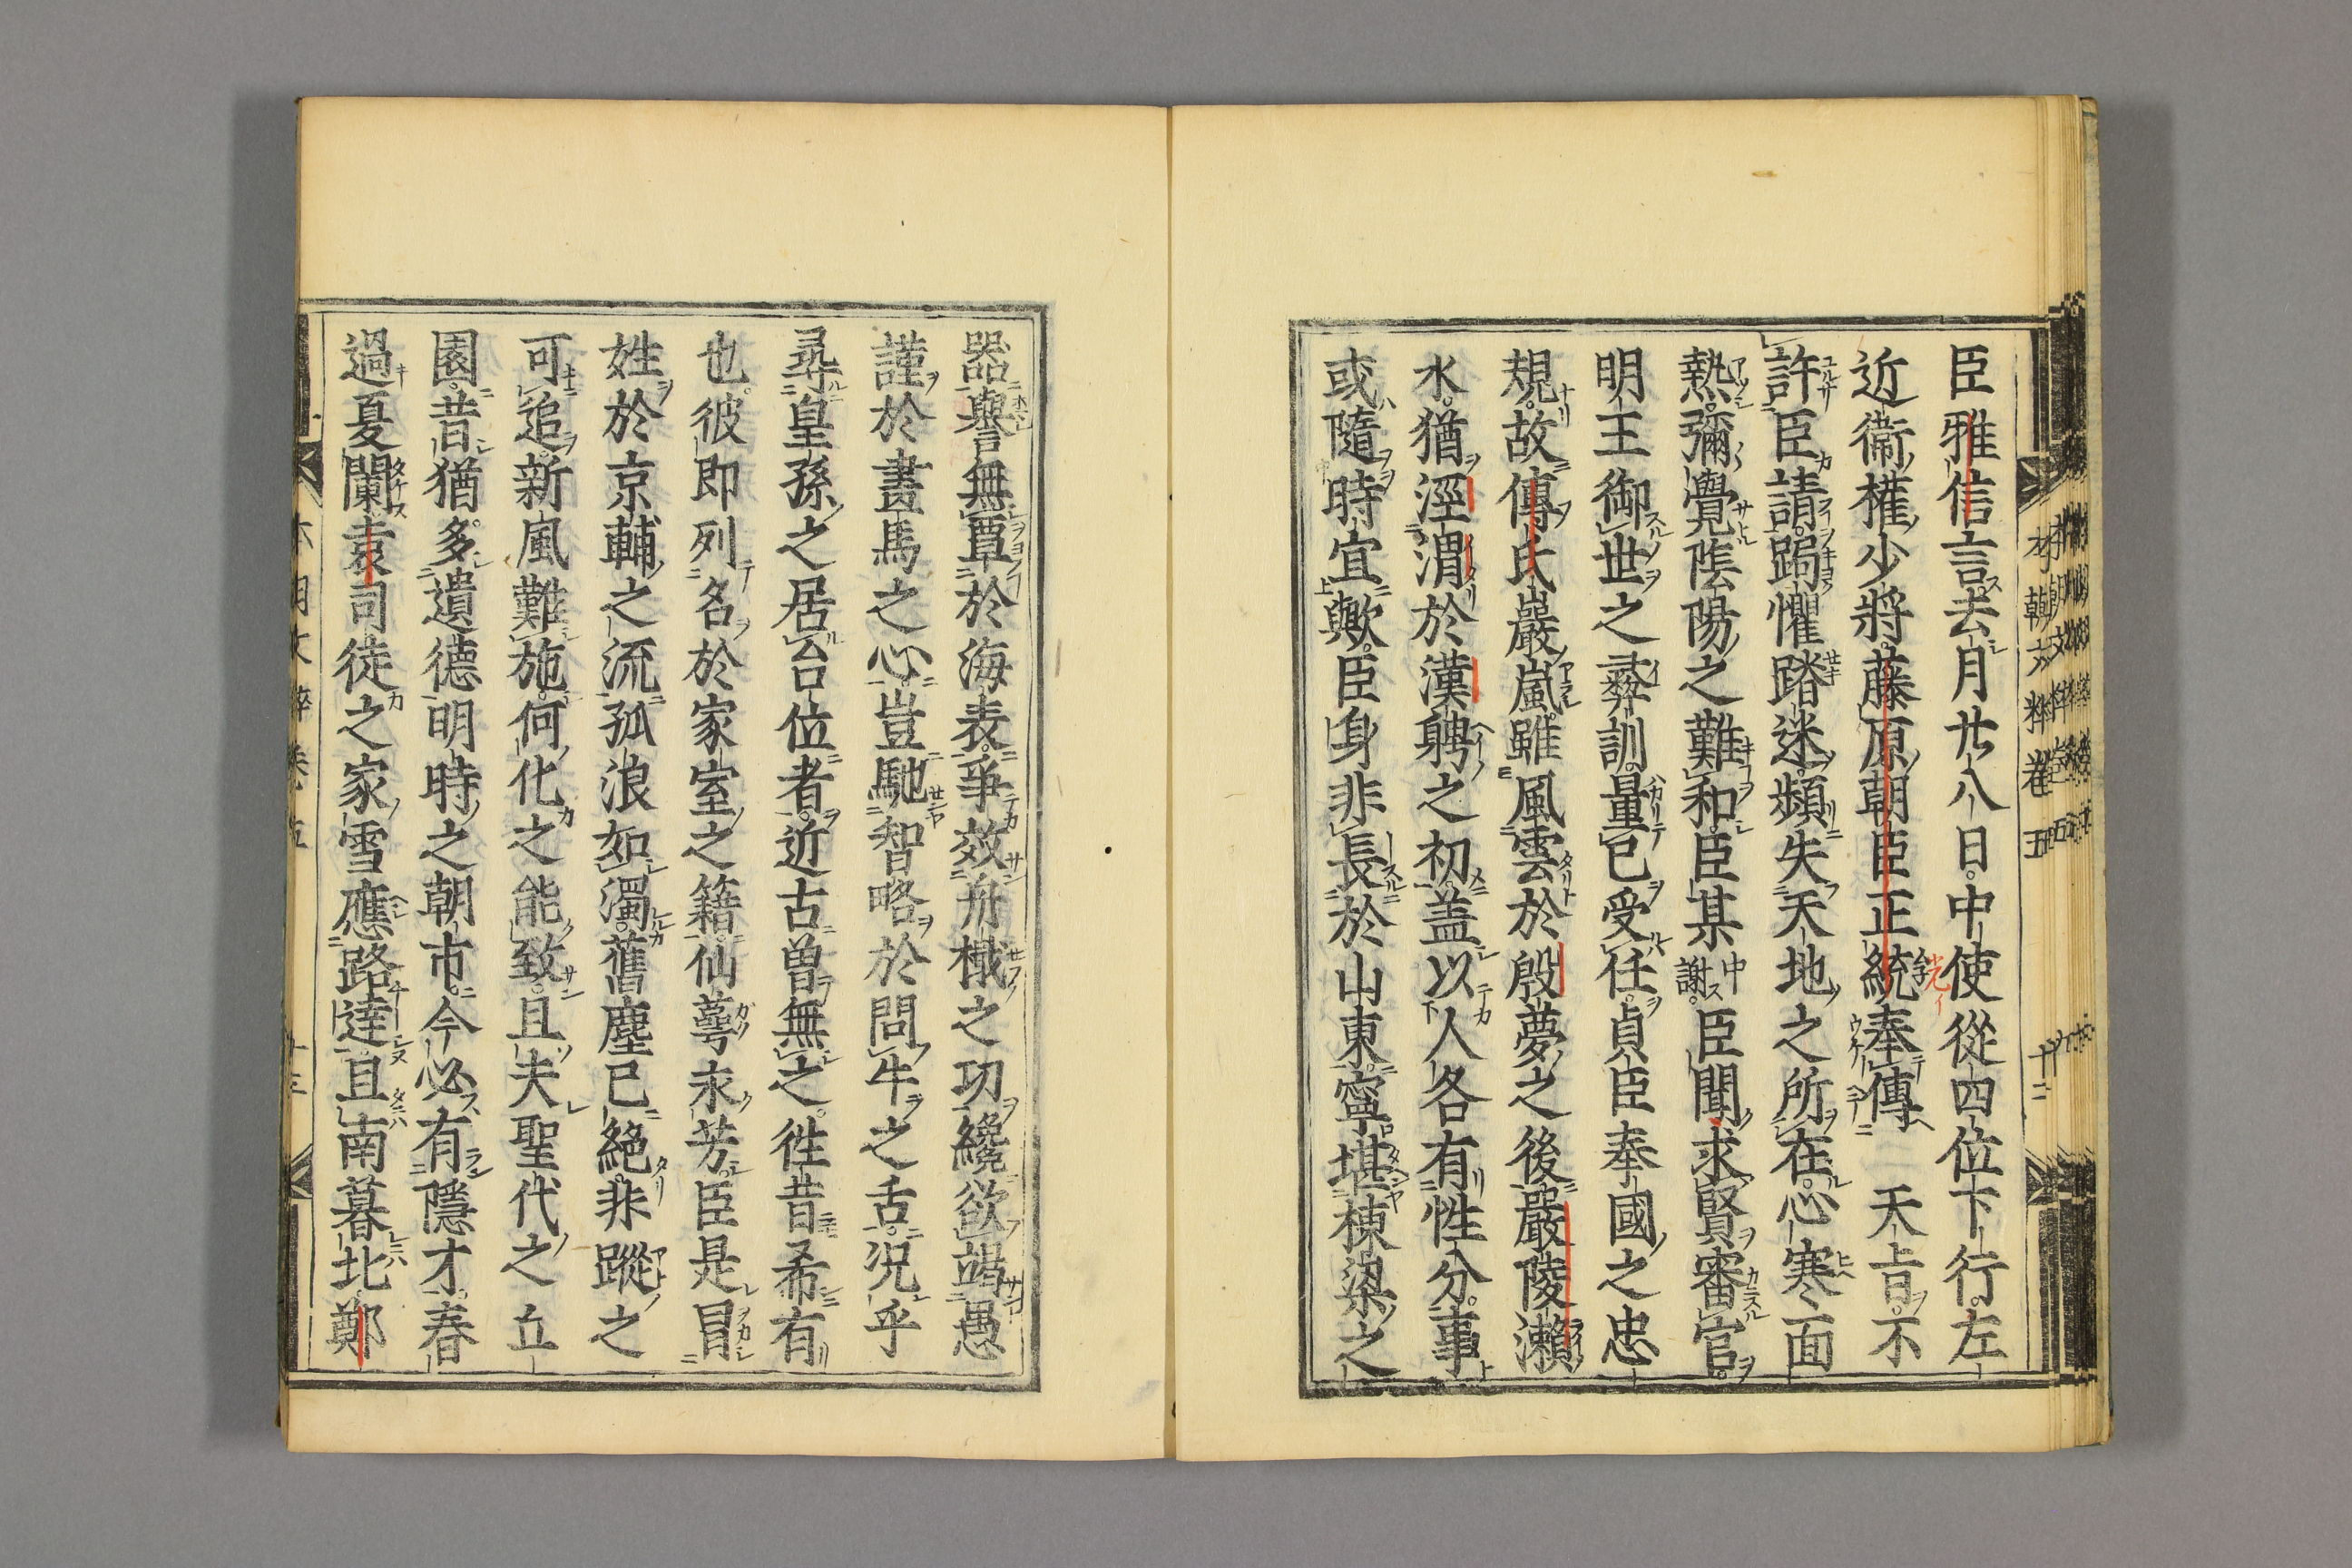 臣雅信言去月廿八日中使從四位下行左
近衞權少將藤原朝臣正統奉傳天旨不
許臣請跼懼踏迷頻失天地之所在心寒面
熱彌覺陰陽之難和臣某中謝臣聞求賢審官
明王御世之彛訓量已受任貞臣奉國之忠
規故傳氏巖嵐雖風雲於殷夢之後嚴陵瀨
水猶涇渭於漢聘之初盖以人各有性分事
或隨時宜歟臣身非長於山東寧堪棟梁之
器輿言無覃於海表爭效舟檝之功纔欲竭愚
謹於書馬之心豈馳智略於問牛之舌況乎
尋皇孫之居台位者近古曾無之徃昔希有
也彼即列名於家室之籍仙蕚永芳臣是冒
姓於京輔之流孤浪如濁舊塵已絕非蹤之
可追新風難施何化之能致且夫聖代之丘
園昔猶多遺德明時之朝市今必有隱才春
過夏闌袁司徒之家雪應路達且南暮北鄭
本朝文粹卷五
十二